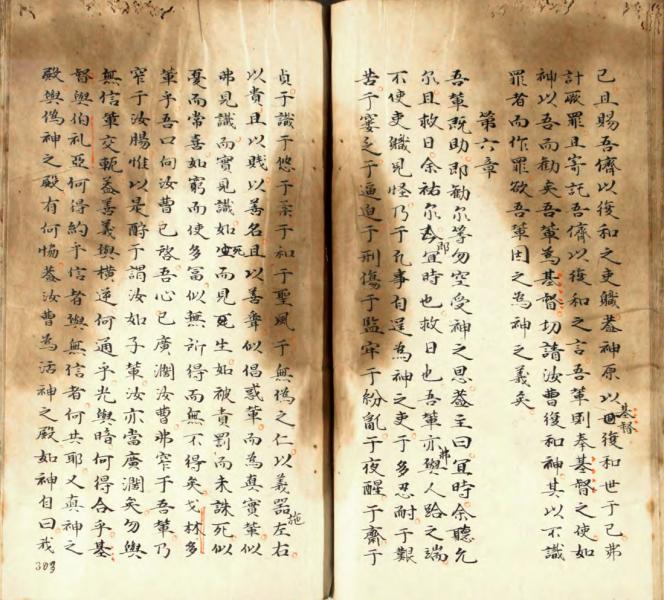 己且賜吾儕以復和之吏職蓋神原以基督復和世于己弗
計厥罪且寄託吾儕以復和之言吾輩則奉基督之使如
神以吾而勸矣吾輩為基督切請汝曹復和神其以不識
罪者而作罪欲吾輩因之為神之義矣
第六章
吾輩既助即勸尔等勿空受神之恩蓋主曰宜時余聽允
尔且救日余祐尔今即宜時也救日也吾輩亦弗與人跲之端
不使吏職見怪乃于凡事自逞為神之吏于多忍耐于艱
苦于窶乏于逼迫于刑傷于監牢于紛亂于夜醒于齋于
貞于識于悠于柔于和于聖風于無偽之仁以義器施左右
以貴且以賎以善名且以善聲似倡惑輩而為真實輩似
弗見識而實見識如死而見生如被責罰而未誅死似
憂而常喜如窮而使多富似無所得而無不得矣戈林多
輩乎吾口向汝曹已啓吾心已廣濶汝曹弗窄于吾輩乃
窄于汝腸惟以是酧于謂汝如子輩汝亦當廣濶矣勿與
無信輩交軛蓋善義與橫逆何通乎光與暗何得合乎基
督與伯礼亞何得約乎信者與無信者何共耶又真神之
殿與偽神之殿有何恊蓋汝曹為活神之殿如神自曰我
303